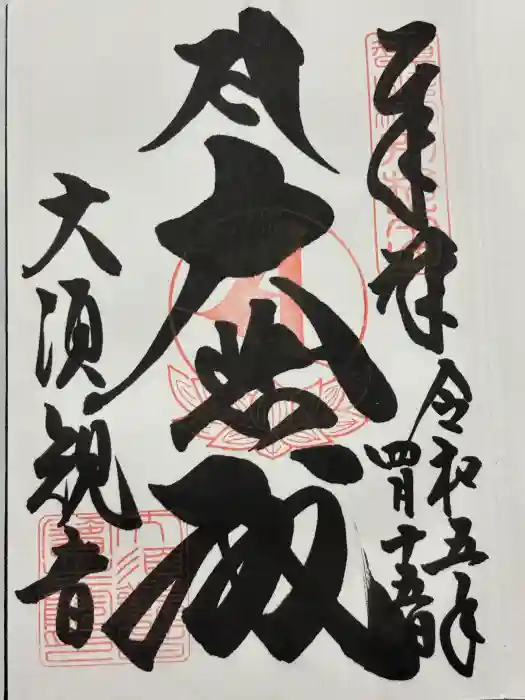 奉拝
令和五年
四月十五日
大悲殿
大須観音